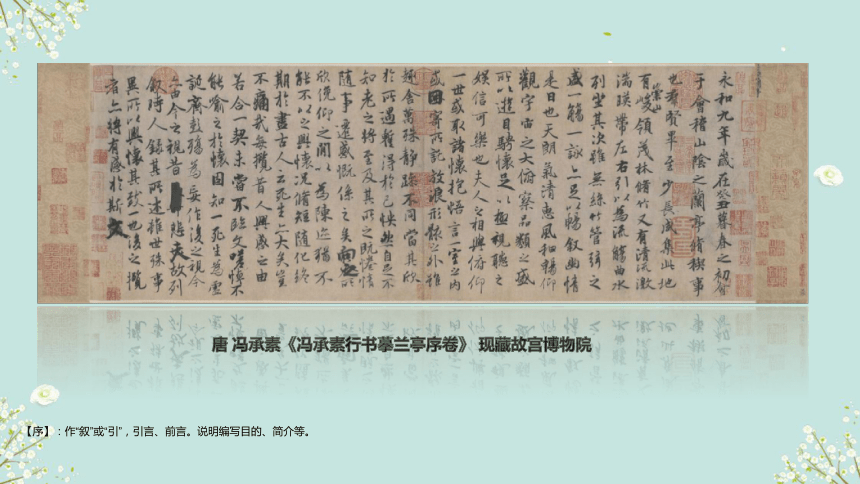 永和九年歲在癸丑暮春之初會
于會稽山陰之蘭亭脩稧事
也羣賢畢至少長咸集此地
有崇山峻領茂林脩竹又有清流激
湍暎帶左右引以為流觴曲水
列坐其次雖無絲竹管弦之
盛一觴一詠亦足以暢叙幽情
是日也天朗氣清惠風和暢仰
觀宇宙之大俯察品類之盛
所以遊目騁懷足以極視聽之
娛信可樂也夫人之相與俯仰
一世或取諸懷抱悟言一室之內
或因寄所託放浪形骸之外雖
趣舍萬殊静躁不同當其欣
於所遇蹔得於己怏然自足不
知老之將至及其所之既惓情
隨事遷感慨係之矣向之所
欣俛仰之閒以為陳迹猶不
能不以之興懷況脩短隨化終
期於盡古人云死生亦大矣豈
不痛哉每攬昔人興感之由
若合一契未嘗不臨文嗟悼不
能喻之於懷固知一死生為虛
誕齊彭殤為妄作後之視今
亦由今之視昔悲夫故列
叙時人錄其所述雖世殊事
異所以興懷其致一也後之攬
者亦將有感於斯文
唐 冯承素《冯承素行书摹兰亭序卷》 现藏故宫博物院
【序】:作“叙”或“引”,引言、前言。说明编写目的、简介等。